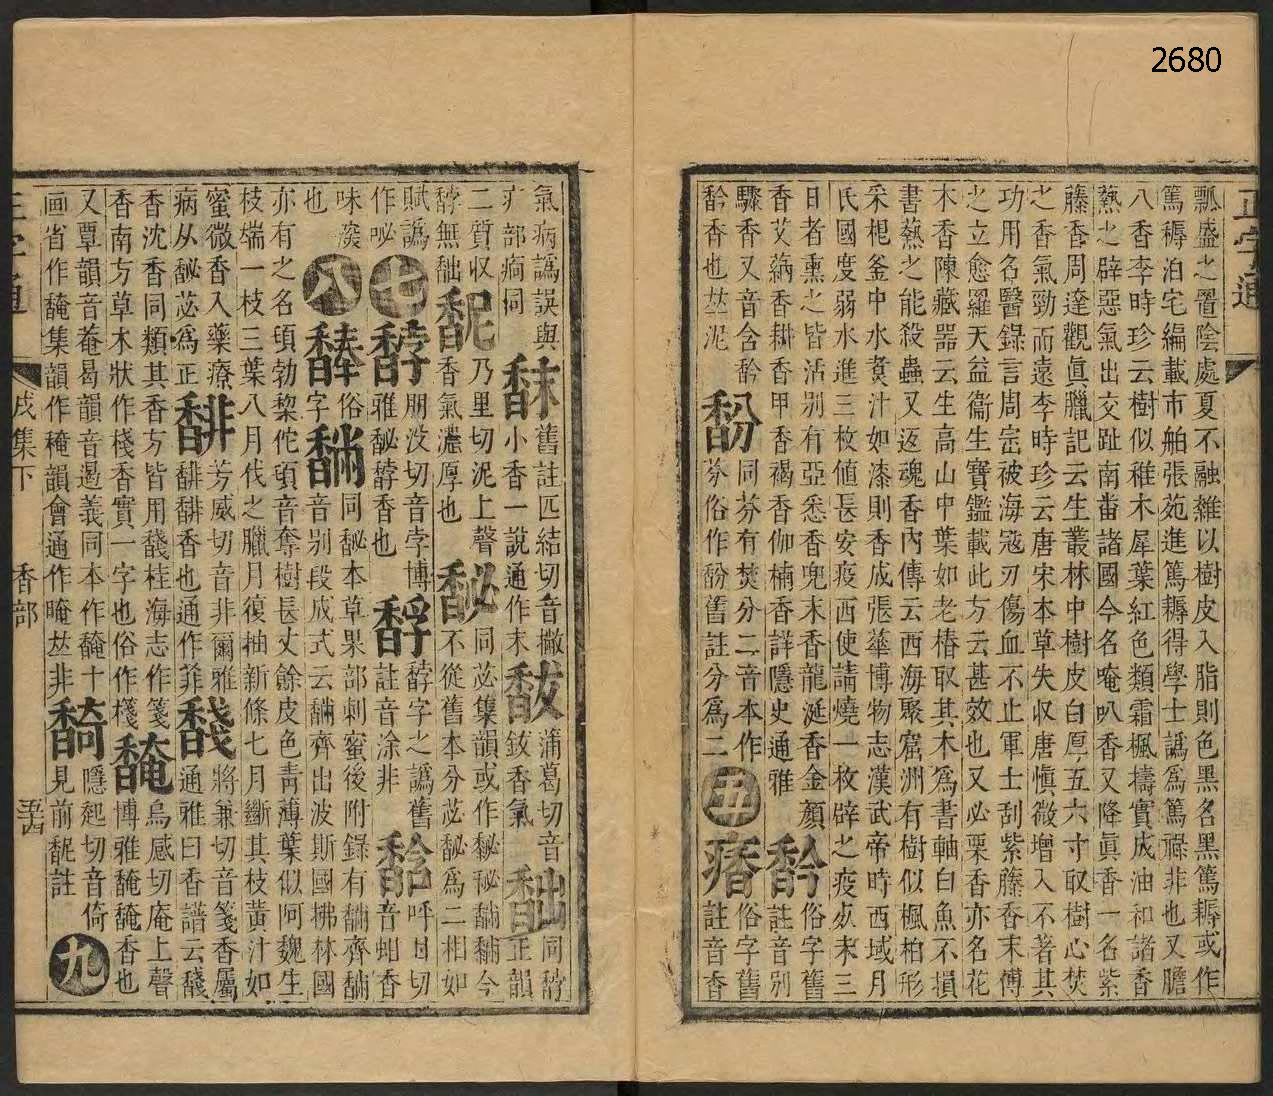 2680
正字通
瓢盛之置陰處夏不融雜以樹皮入脂則色黑名黑篤耨或作
篤稱泊宅編載市舶張苑進篤耨得學士譌爲篤祿非也又膽
八香李時珍云樹似稚木犀葉紅色類霜楓擣實成油和諸香
爇之辟惡氣出交趾南番諸國今名唵叭香又降眞香一名紫
藤香周達觀眞臘記云生叢林中樹皮白厚五六寸取樹心焚
之香氣勁而遠李時珍云唐宋本草失収唐愼微增入不著其
功用名醫錄言周崈被海寇刃傷血不止軍士刮紫藤香末傅
之立愈羅天益衞生寶鑑載此方云甚效也又必栗香亦名花
木香陳藏器云生高山中葉如老椿取其木爲書軸白魚不損
書爇之能殺蟲又返魂香內傳云西海聚窟洲有樹似楓柏形
采根釜中水煑汁如漆則香成張華博物志漢武帝時西域月
氏國度弱水進三枚値長安疫西使請燒一枚辟之疫疾未三
日者熏之皆活别有亞悉香兜末香龍涎香金顏
香艾蒳香耕香甲香褐香伽楠香詳隱史通雅 馚俗字舊註音别
驟香又音含馚同芬有焚分二音本作
馚香也𠀤泥 馚芬俗作馚舊註分爲二 五 㾗俗字舊註音香
氣病譌誤與
疒部痾同 䬴舊註匹結切音撇小香一說通作末 馛蒲葛切音鈸香氣 䭯同馞正韻
二質収
馞無䭯 䭲乃里切泥上聲香氣濃厚也 馝同苾集韻或作䭱秘䭳黼今不從舊本分苾馝爲二相如
賦譌
作咇 七 馞朋沒切音孛博雅馝馞香也 馟馞字之譌舊註音凃非 䭰呼甘切音蚶香
味䬓
也 八 䭰俗字 䭳同馝本草果部刺蜜後附錄有䭳齊䭳音别段成式云䭳齊出波斯國拂林國
亦有之名頊勃棃佗頊音奪樹長丈餘皮色靑薄葉似阿魏生
枝端一枝三葉八月伐之臘月復抽新條七月斷其枝黃汁如
蜜微香入藥療
病从馝苾爲正 馡芳威切音非爾雅馡馡香也通作菲 馢將兼切音箋香屬通雅曰香譜云馢
香沈香同類其香方皆用馢桂海志作箋
香南方草木狀作棧香實一字也俗作椶 馣烏感切庵上聲博雅馣馣香也
又覃韻音菴曷韻音遏義同本作馣十
画省作馣集韻作䅖韻會通作晻𠀤非 䭲隱起切音倚見前䭲註 九
正字通
戌集下
香部
五十四